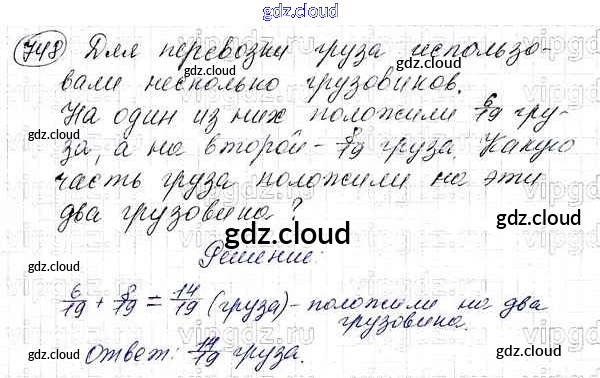 gdz.cloud
748 Для перевозки груза использо-
вали несколько грузовиков.
На один из них положили 6/19 гру-
за, а на второй - 8/19 груза. Какую
часть груза положили на эти
два грузовика?
gdz.cloud
Решение:
gdz.cloud
6/19 + 8/19 = 14/19 (груза) - положили на два
грузовика.
Ответ: 14/19 груза.
gdz.cloud gdz.cloud
gdz.cloud